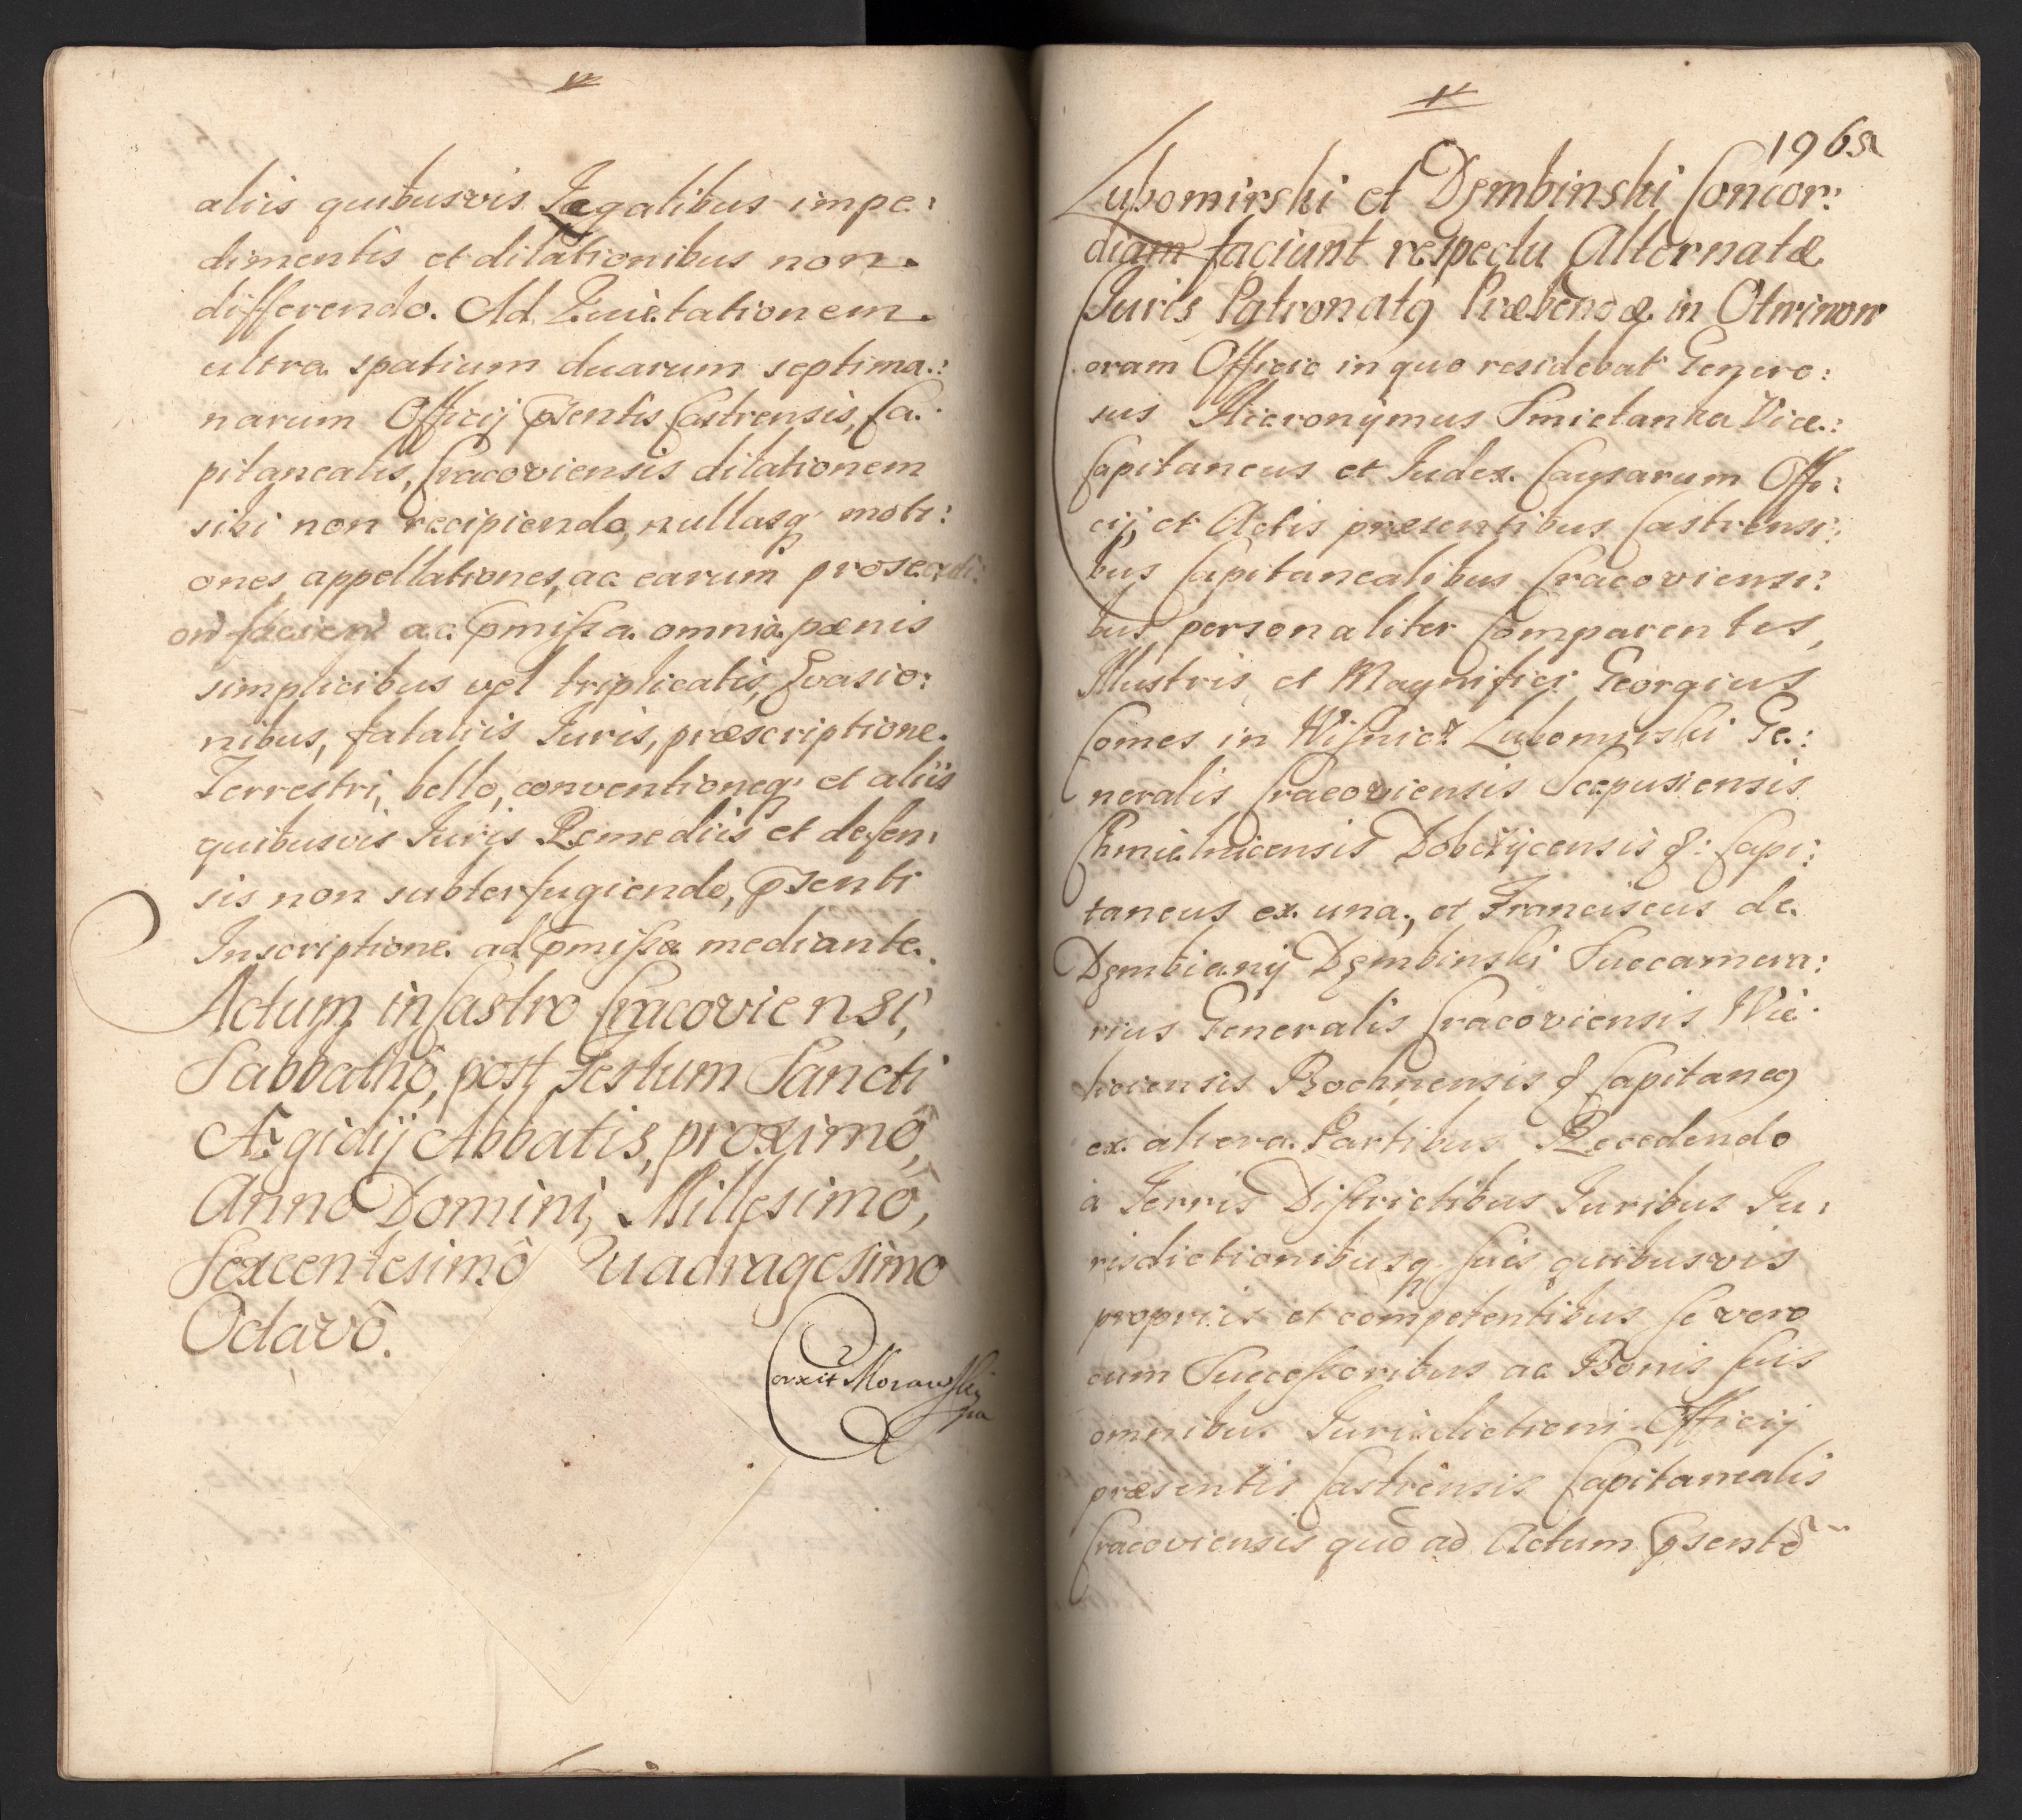 aliis quibusvis Legalibus impe:
dimentis et dilationibus non
differendo. Ad Quietationem
ultra spatium duarum septima:
narum Officij pñtis Castrensis, Ca:
pitanealis, Cracoviensis dilationem
sibi non recipiendo, nullasq moti:
ones, appellationes, ac earum prosecuti:
ac pmissa omnia pænis
simplicibus vel triplicatis, Evasio:
nibus, fataliis Iuris, præscriptione
Terrestri, bello, conventioneq et aliis
quibusvis Iuris Remediis et defen:
sis non subterfugiendo, psenti
Inscriptione ad pmissa mediante.
Actum in Castro Cracoviensi,
Sabbathô, post Festum Sancti
Ægidij Abbatis, proximô,
Anno Domini, Millesimô,
Sexcentesimô Quadragesimo
Octavô.
Corxit Morawski
mp
1965
Lubomirski et Dębinski Concor:
diam faciunt respectu Alternatæ
Iuris Patronatq Præbendæ in Otwinow
oram Officio in quo residebat Genero:
sus Hieronymus Smietanka Vice:
Capitaneus et Iudex Causarum Offi:
cij, et Actis præsentibus Castrensi:
bus Capitanealibus Cracoviensi:
bus personaliter Comparentes,
Illustris et Magnifici Georgius
Comes in Wisnicz Lubomirski Ge:
neralis Cracoviensis Scepusiensis
Chmielnicensis Dobczycensis &: Capi:
taneus ex una, et Franciscus de
Dęmbiany Dęmbinski Succamera:
rius Generalis Cracoviensis Wie:
licensis Bochnensis & Capitaneq
ex altera Partibus Recedendo
à Terris Districtibus Iuribus Iu:
risdictionibusq suis quibusvis
propriis et competentibus se vero
cum Successoribus ac Bonis suis
omnibus Iurisdictioni Officij
præsentis Castrensis Capitanealis
Cracoviensis quô ad Actum psentẽ